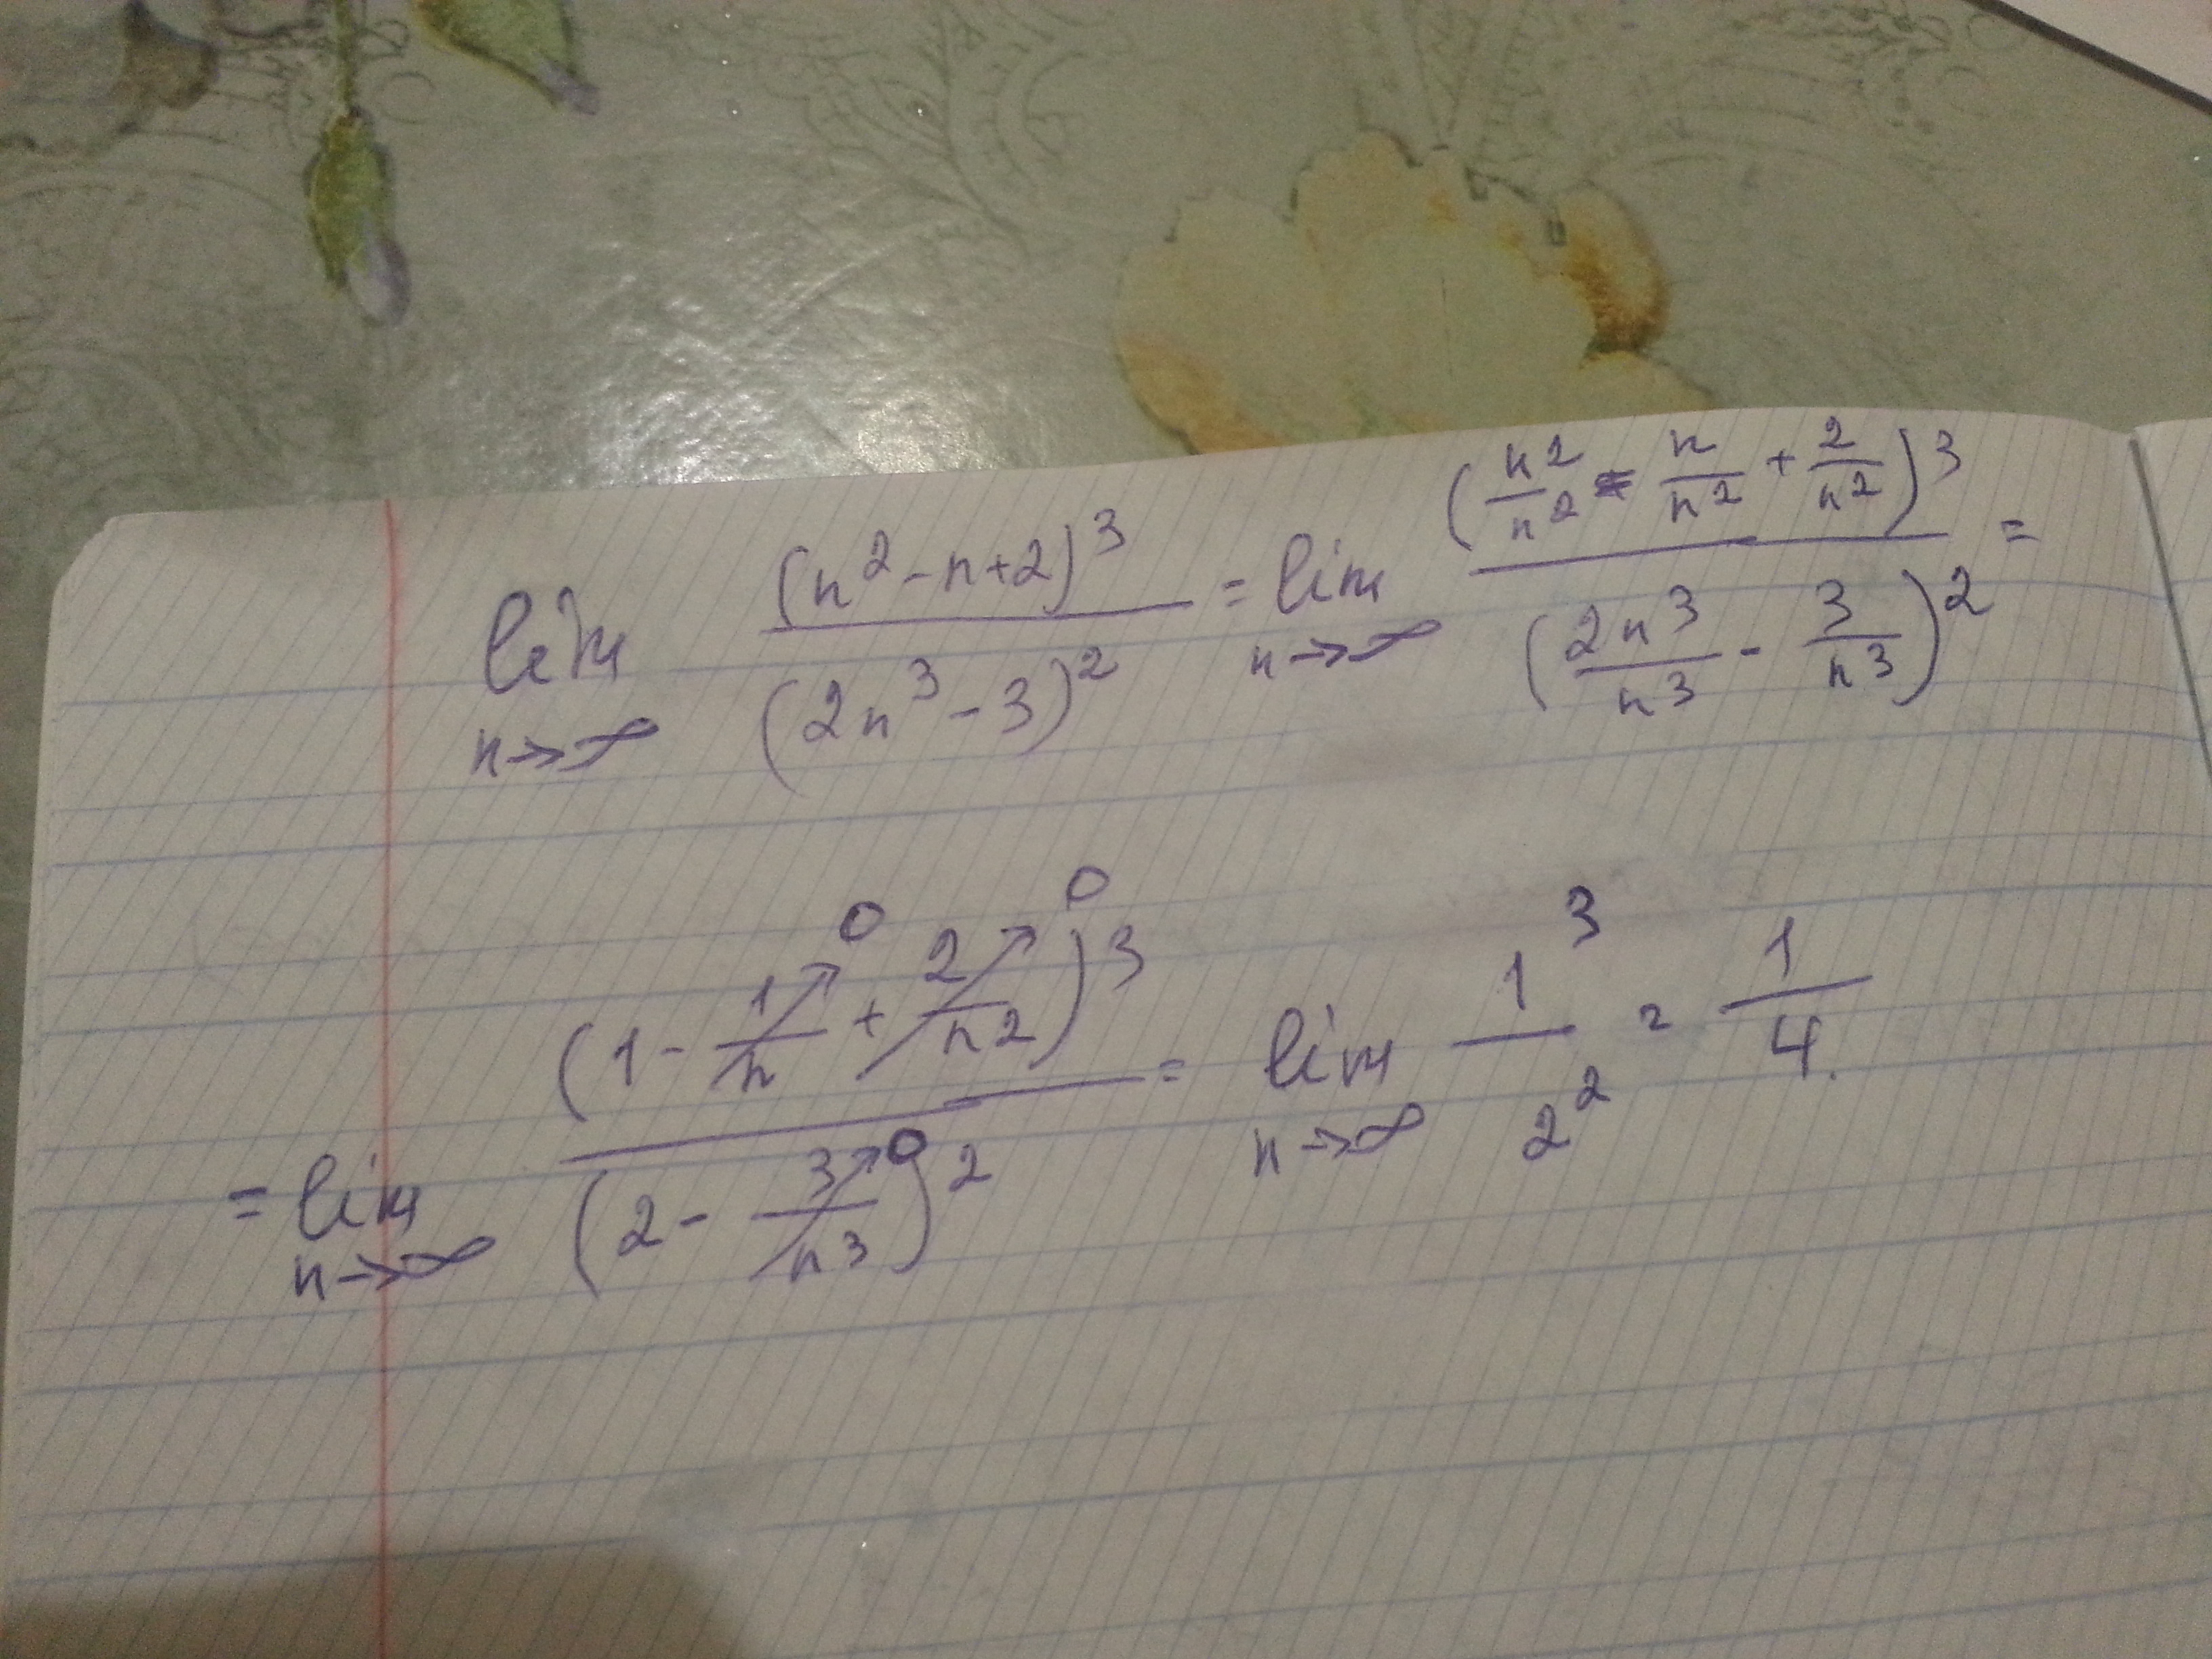 lim n→∞ (n² - n + 2)³ / (2n³ - 3)² = lim n→∞ (n²/n² - n/n² + 2/n²)³ / (2n³/n³ - 3/n³)² =
= lim n→∞ (1 - 1/n↗0 + 2/n²↗0)³ / (2 - 3/n³↗0)² = lim n→∞ 1³/2² = 1/4.